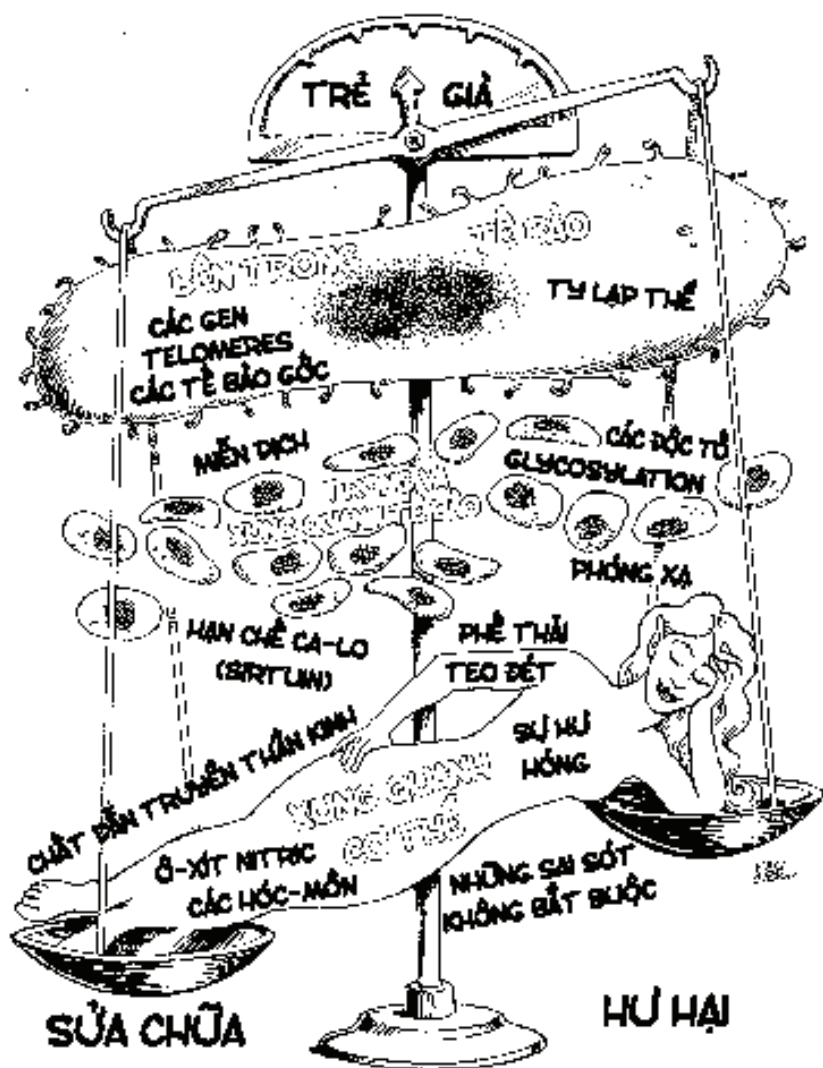 TRẺ GIÀ
BÊN TRONG TẾ BÀO
CÁC GEN
TELOMERES
CÁC TẾ BÀO GỐC
TY LẠP THỂ
MIỄN DỊCH
CÁC ĐỘC TỐ
GLYCOSYLATION
XUNG QUANH TẾ BÀO
PHÓNG XẠ
HẠN CHẾ CA-LO
(SIRTUIN)
PHẾ THẢI
TEO ĐÉT
SỰ HƯ
HỎNG
CHẤT DẪN TRUYỀN THẦN KINH
XUNG QUANH
CƠ THỂ
Ô-XÍT NITRIC
CÁC HÓC-MÔN
NHỮNG SAI SÓT
KHÔNG BẮT BUỘC
SỬA CHỮA
HƯ HẠI